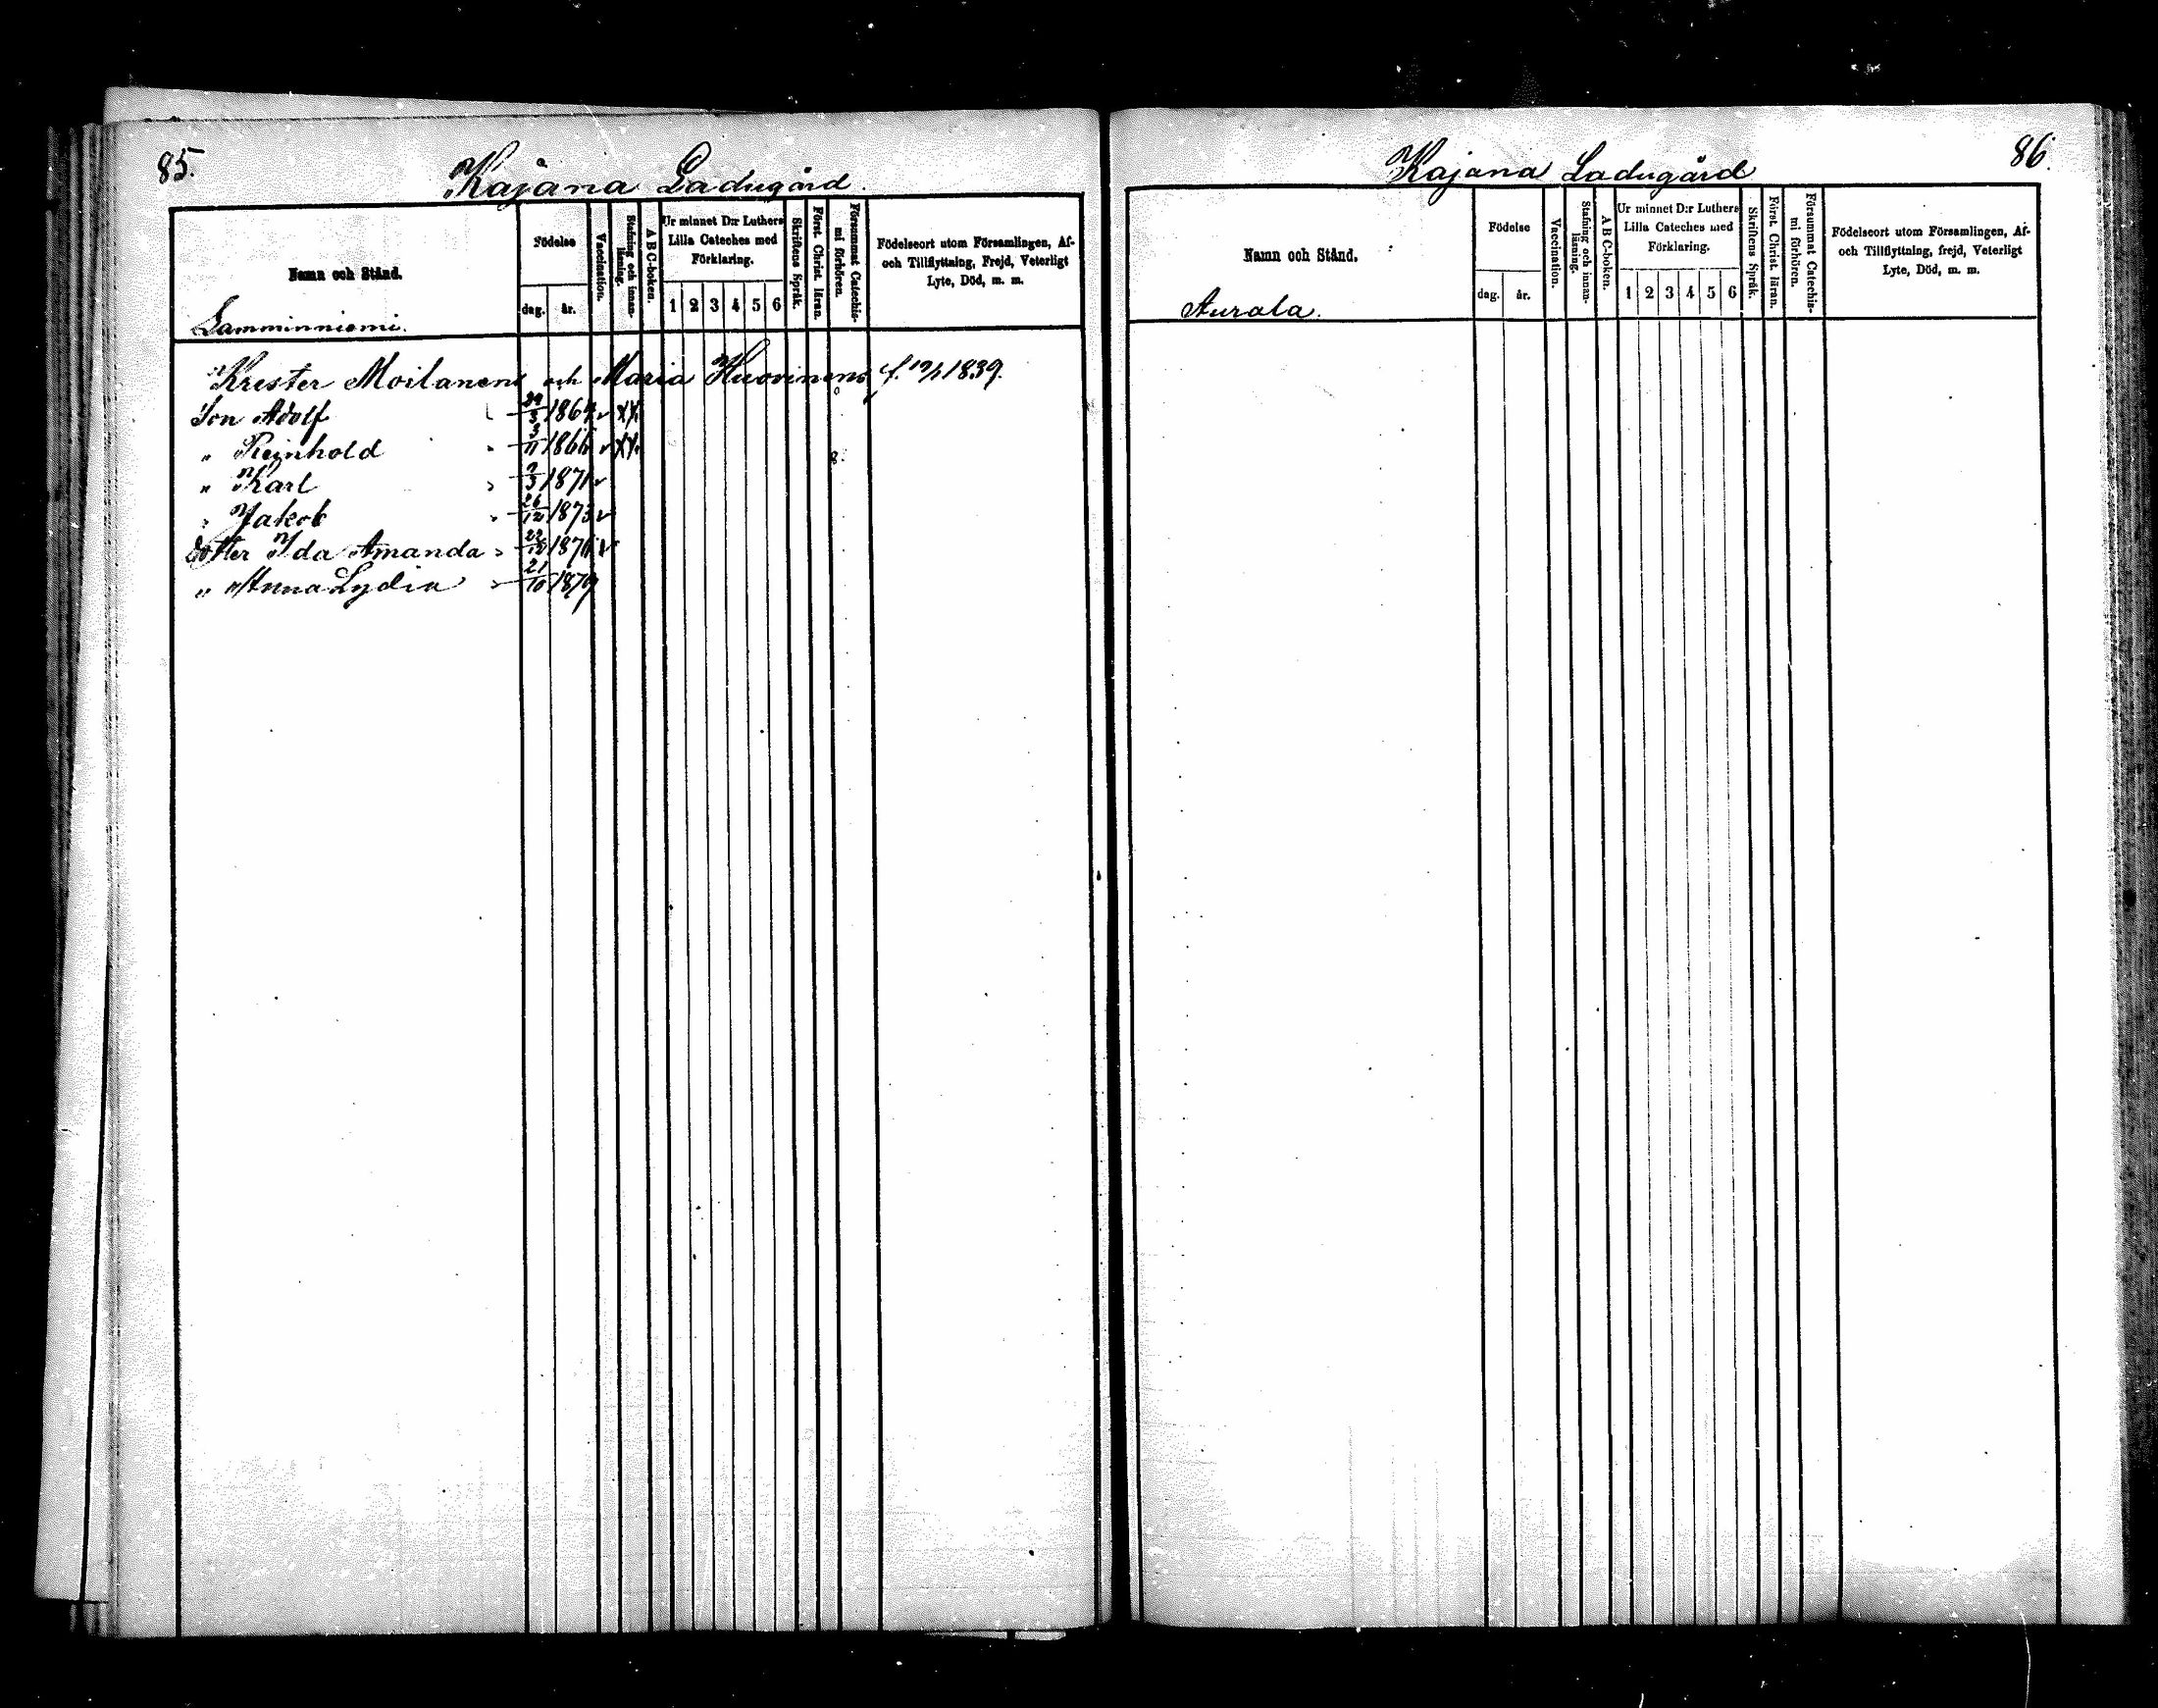 85.
Kajana Ladugård.
Namn och Stånd.
Födelse
dag.
år.
Vaccination.
Stafning och innan-
läsning.
A B C-boken.
Ur minnet D:r Luthers
Lilla Cateches med
Förklaring.
1 2 3 4 5 6
Skriftens Språk.
Först. Christ. läran.
Försummat Catechis-
mi förhören.
Födelseort utom Församlingen, Af-
och Tillflyttning, Frejd, Veterligt
Lyte, Död, m. m.
Lamminniemi.
Krister Moilanens och Maria Huovinens, f. 1839.
Son Adolf 29/3 1864 v XX
" Reinhold 3/11 1866 v XX
" Karl /3 1871 v
" Jakob 26/12 1873 v
dotter Ida Amanda 22/12 1876 v
" Anna Lydia 21/10 1879
86.
Kajana Ladugård
Namn och Stånd.
Födelse
dag.
år.
Vaccination.
Stafning och innan-
läsning.
A B C-boken.
Ur minnet D:r Luthers
Lilla Cateches med
Förklaring.
1 2 3 4 5 6
Skriftens Språk.
Först. Christ. läran.
Försummat Catechis-
mi förhören.
Födelseort utom Församlingen, Af-
och Tillflyttning, frejd, Veterligt
Lyte, Död, m. m.
Aurala.